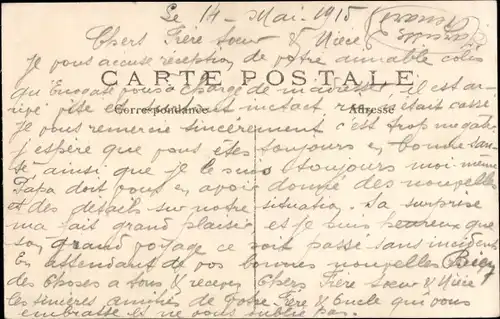 Le 14 - Mai - 1915
Chers Frère Soeur & Nièce
Je vous accuse réception de votre aimable colis
CARTE POSTALE
qu'Enogate vous a chargé de m'adresser, il est ar-
rivé vite et intact rien était cassé
Correspondance Adresse
Je vous remercie sincèrement c'est trop me gater
j'espère que vous êtes toujours en bonne san-
té ainsi que je le suis toujours moi même
Papa doit vous en avoir donné des nouvelles
et des détails sur notre situation. Sa surprise
m'a fait grand plaisir et je suis heureux que
son grand voyage ce soit passé sans incidents
En attendant de vos bonnes nouvelles Bien
des choses à tous & recevez Chers Frère Soeur & Nièce
les sincères amitiés de votre Frère & Oncle qui vous
embrasse et ne vous oublie pas.